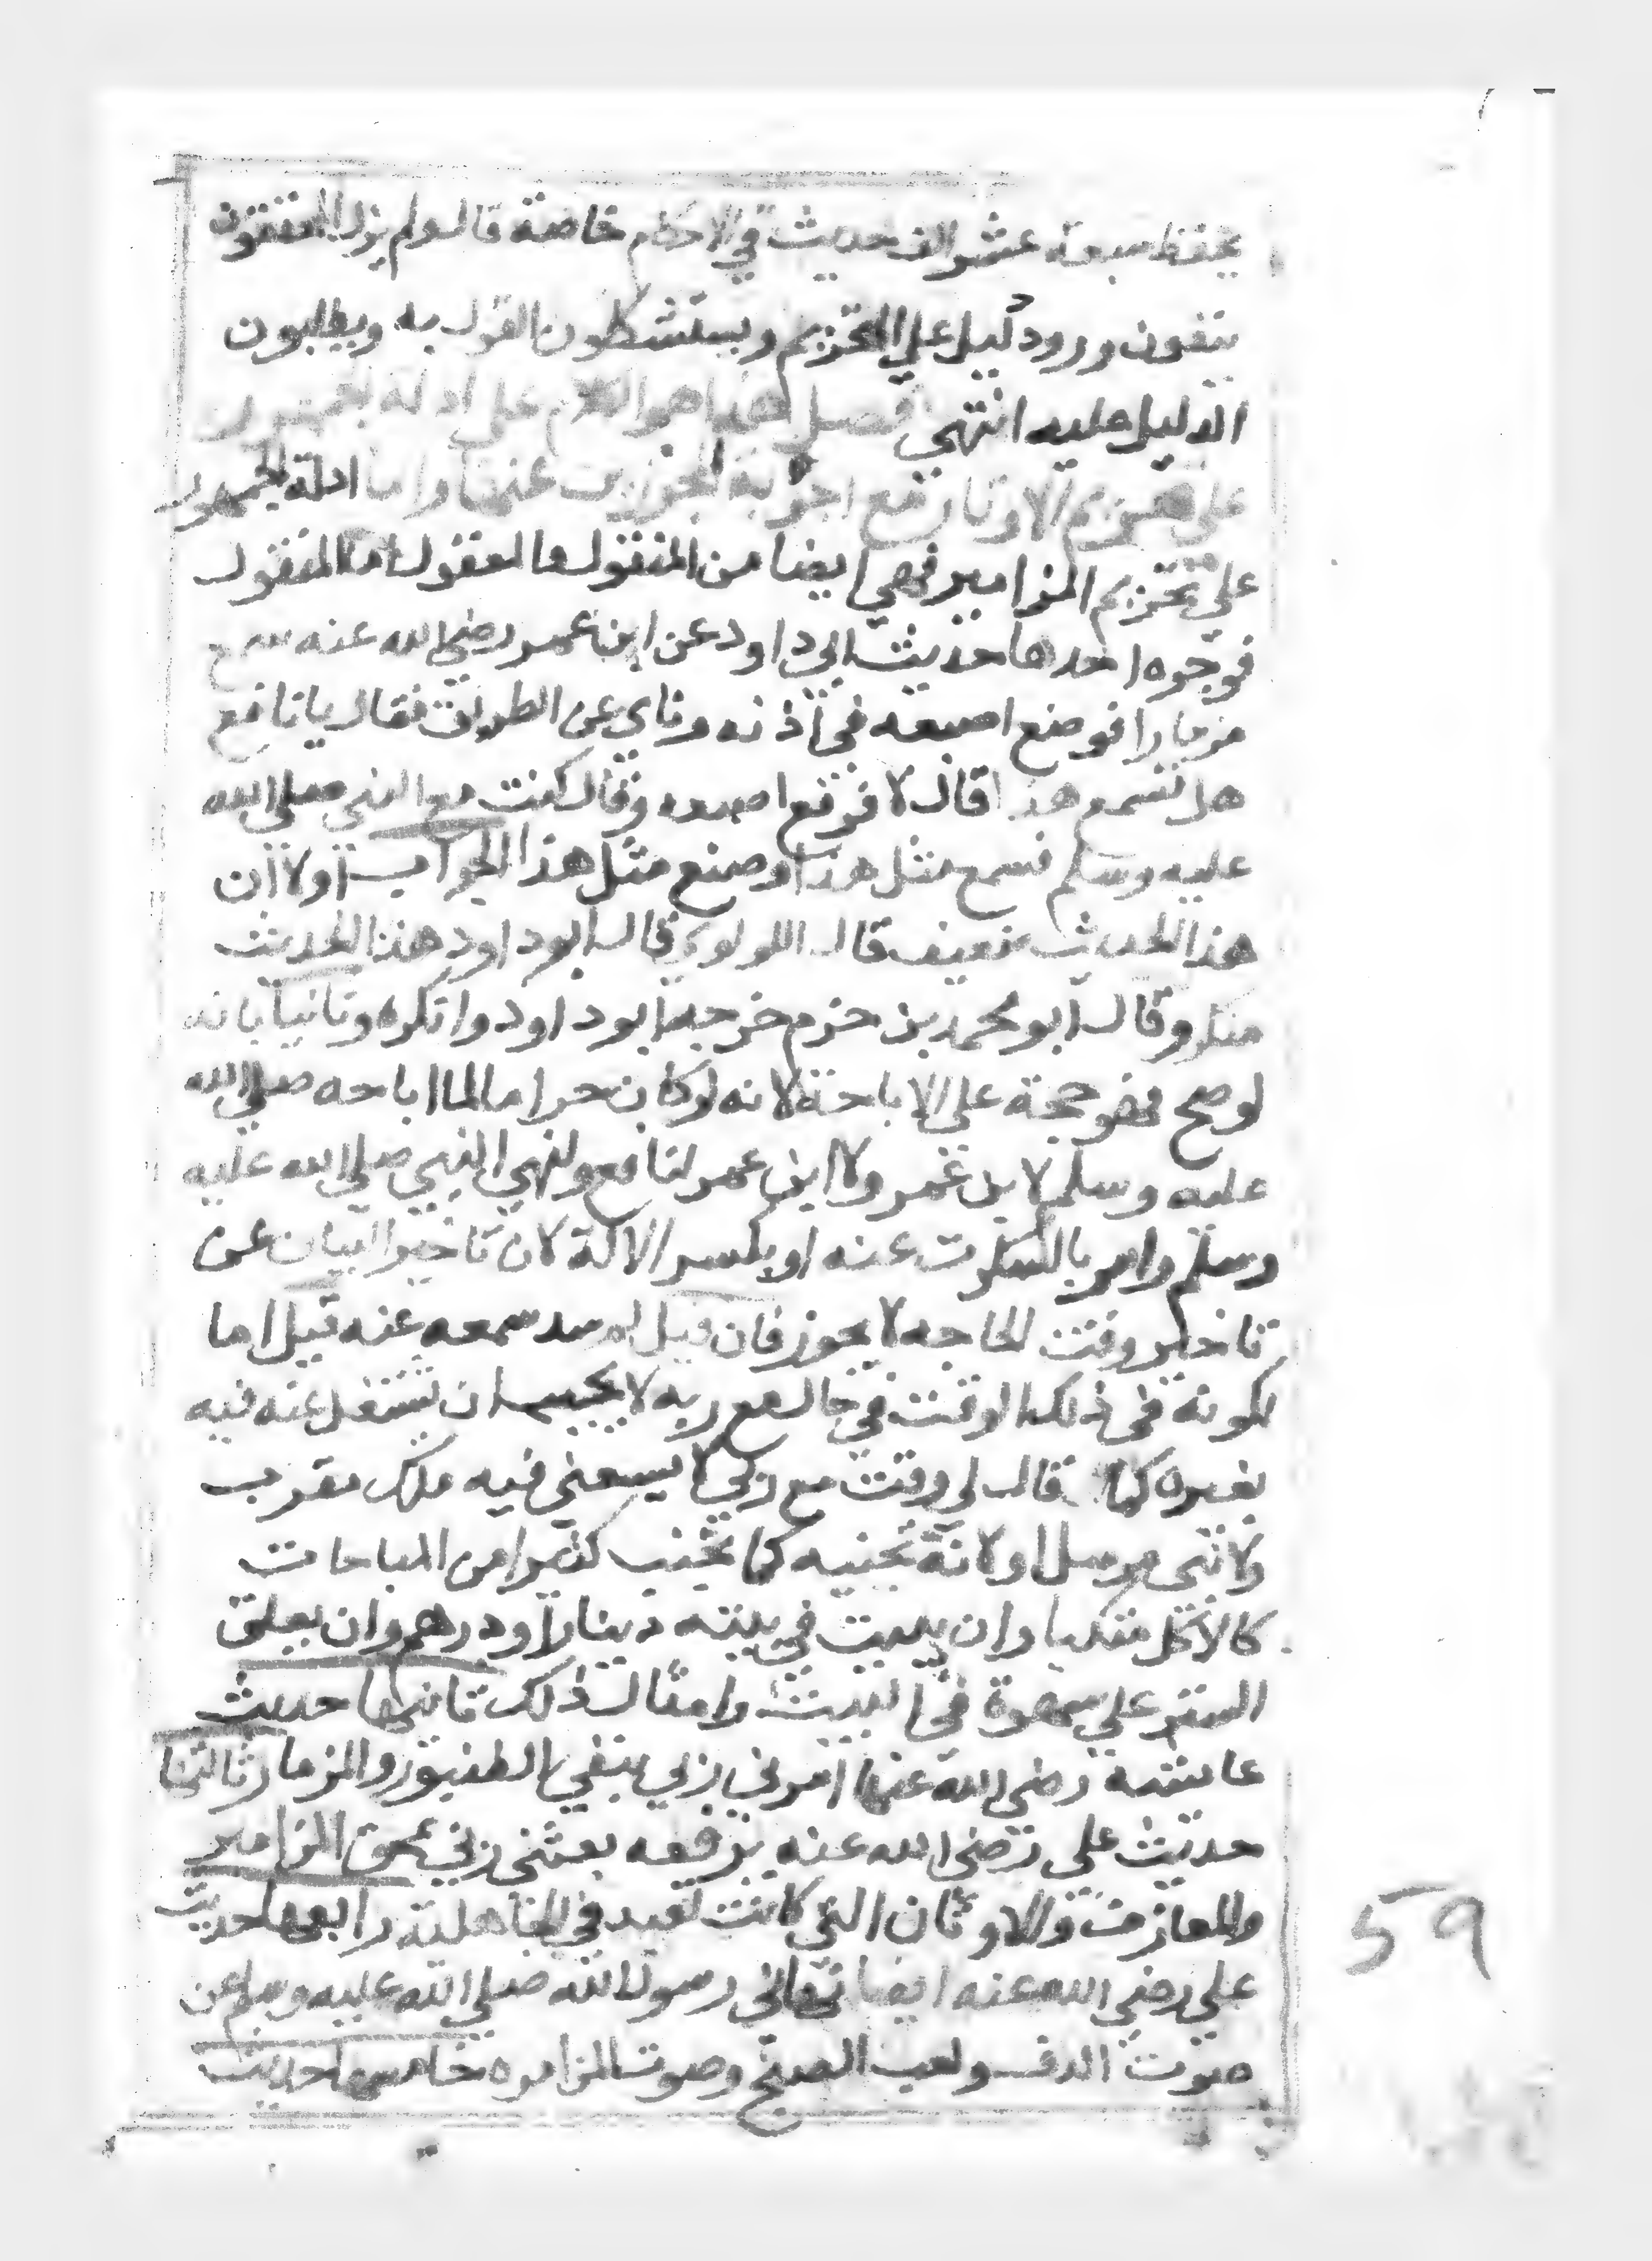 يحفظ سبعة عشر الف حديث في الاحكام خاصة قال ولم يزل المتقنون
ينفون ورود دليل علي التحريم ويستشكلون القول به ويطلبون
الدليل عليه انتهي فصل هذا هو الكلام علي ادلة الجمهور
علي تحريم الاوتار مع اجوبة المجوزين عنها واما ادلة الجمهور
علي تحريم المزامير فهي ايضا من المنقول والمعقول اما المنقول
فوجوه احدها حديث ابي داود عن ابن عمر رضي الله عنه سمع
مزمارا فوضع اصبعه في اذنه وناي عن الطريق فقال يا نافع
هل تسمع هذا قال لا فرفع اصبعه وقال كنت مع النبي صلي الله
عليه وسلم فسمع مثل هذا وصنع مثل هذا الجواب اولا ان
هذا الحديث ضعيف قال اللولوي قال ابو داود هذا الحديث
منكر وقال ابو محمد بن حزم خرجه ابو داود وانكره وثانيا بانه
لو صح فهو حجة علي الاباحة لانه لو كان حراما لما اباحه صلي الله
عليه وسلم لابن عمر ولا ابن عمر لنافع ولنهي النبي صلي الله عليه
وسلم وامر بالسكوت عنه او بكسر الالة لان تاخير البيان عن
تاخير وقت الحاجه لا يجوز فان قيل لم سد سمعه عنه قيل اما
لكونه في ذلك الوقت في حال مع ربه لا يحب ان يشتغل عنه فيه
بغيره كما قال لي وقت مع ربي لا يسعني فيه ملك مقرب
ولا نبي مرسل او لانه تجنبه كما تجنب كثيرا من المباحات
كالاكل متكيا وان يبيت في بيته دينار او درهم وان يعلق
الستر علي سهوة في البيت وامثال ذلك ثانيها حديث
عايشة رضي الله عنها امرني ربي بنفي الطنبور والمزمار ثالثها
حديث علي رضي الله عنه يرفعه بعثني ربي بمحق المزامير
والمعازف والاوثان التي كانت تعبد في الجاهلية رابعها حديث
علي رضي الله عنه ايضا نهاني رسول الله صلي الله عليه وسلم عن
صوت الدف ولعب الصنج وصوت المزماره خامسها حديث
59